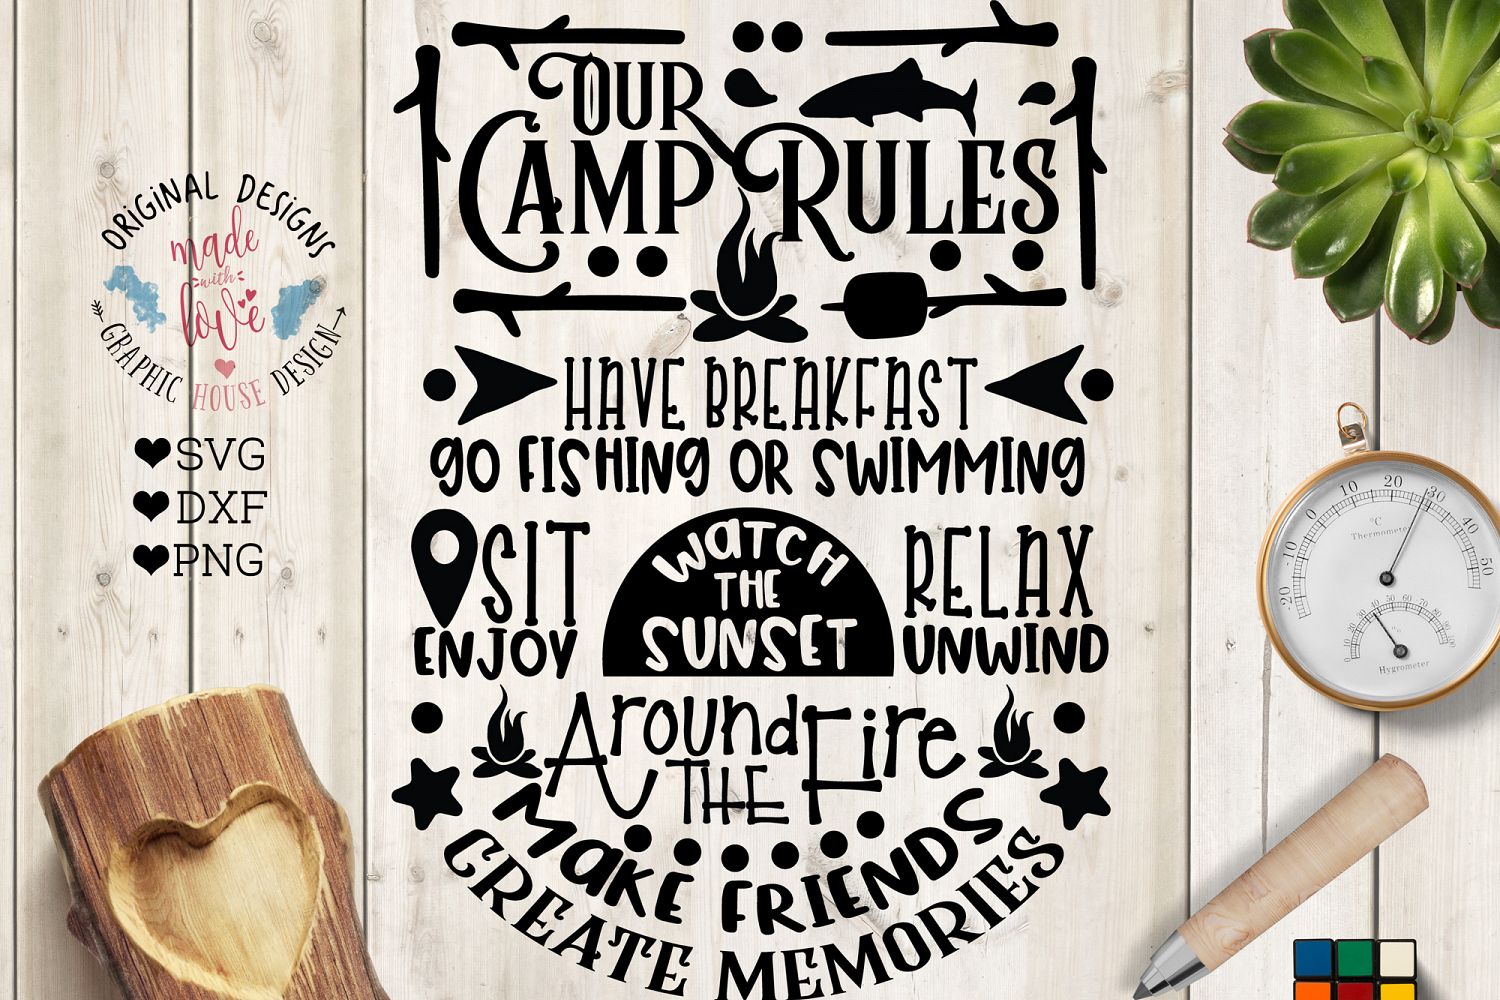 OUR
CAMP RULES
HAVE BREAKFAST
gO FISHING OR SWIMMING
SIT
ENJOY
WATCH
THE
SUNSET
RELAX
UNWIND
AROUND
THE FIRE
MAKE FRIENDS
CREATE MEMORIES
ORIGINAL DESIGNS
made
with
love
GRAPHIC HOUSE DESIGN
SVG
DXF
PNG
-20 -10 0 10 20 30 40 50
°C
Thermometer
Hygrometer